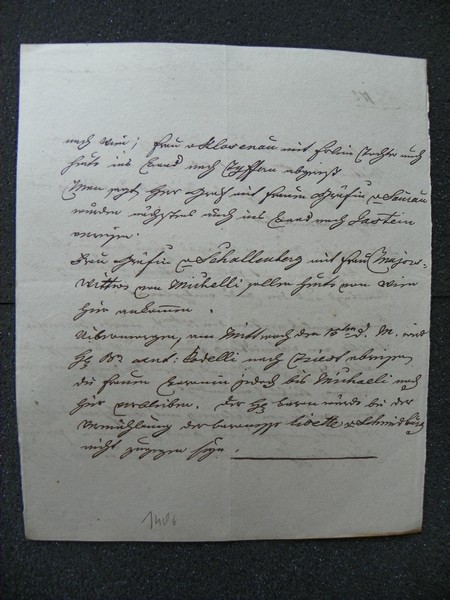 nach Wien; Frau v Klarenau mit Frlein Tochter auch
heute ins Baad nach abgereist
Man sagt, Herr Graf mit Frauen Gräfin v
würden nächstens auch ins Baad nach Gastein
reisen.
Frau Gräfin v Schallenberg mit Frau Majors-
Wittwe von Michelli sollen heute von Wien
hier ankommen.
Uibermorgen, am Mittwoch den 15ten d. M. wird
H: Br. Ant: Codelli nach Triest abreisen,
die Frauen Baronin jedoch bis Michaeli noch
hier verbleiben. Der H: Baron würde bei der
Vermählung der Baronesse Lisette v Schmidburg
nicht zugegen seyn.